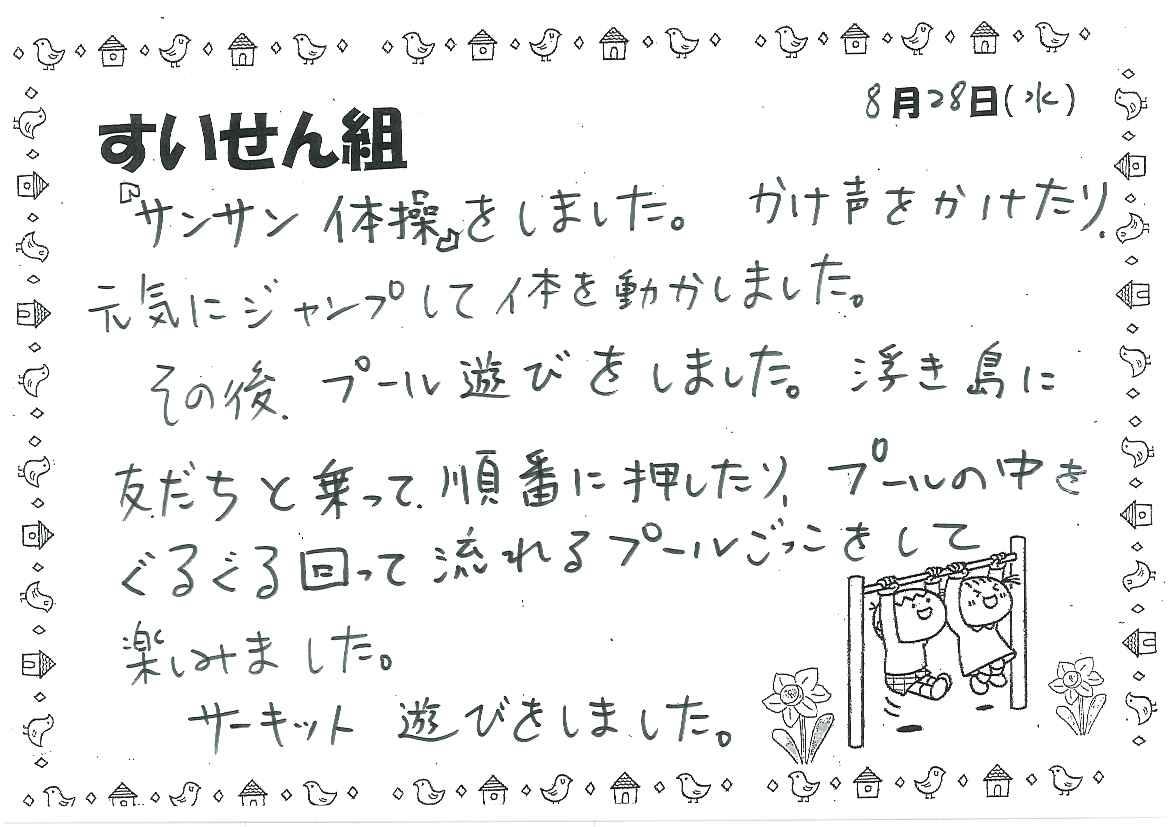 8月28日(水)
すいせん組
『サンサン体操』をしました。 かけ声をかけたり、
元気にジャンプして体を動かしました。
その後、プール遊びをしました。浮き島に
友だちと乗って、順番に押したり、プールの中を
ぐるぐる回って流れるプールごっこをして
楽しみました。
サーキット遊びをしました。